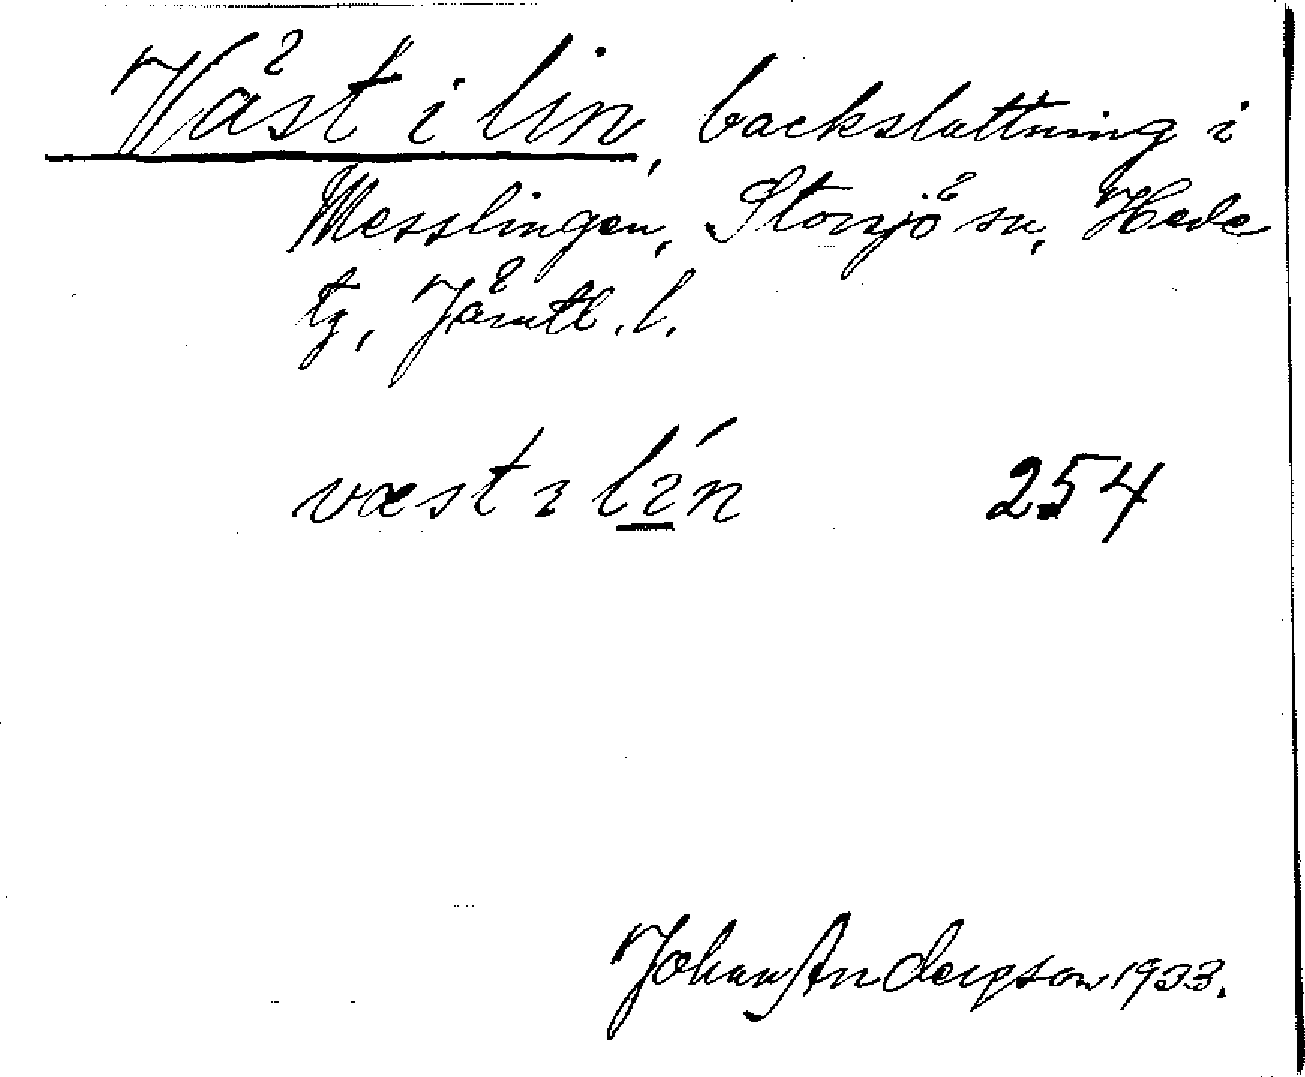 Väst i lin, backsluttning i
Messlingen, Storsjö sn, Hede
tg, Jämtl. l.
væst ɩ lɩ́n 254
Johan Anderpson 1933.